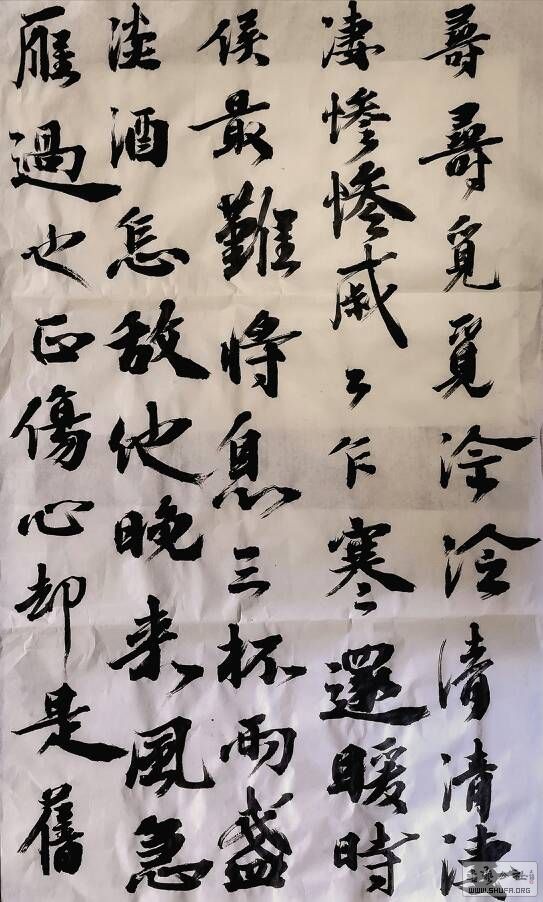 尋尋覓覓冷冷清清凄
凄惨惨戚々乍寒還暖時
候最難将息三杯兩盞
淡酒怎敌他晚来風急
雁過也正傷心却是舊
WWW.SHUFA.ORG